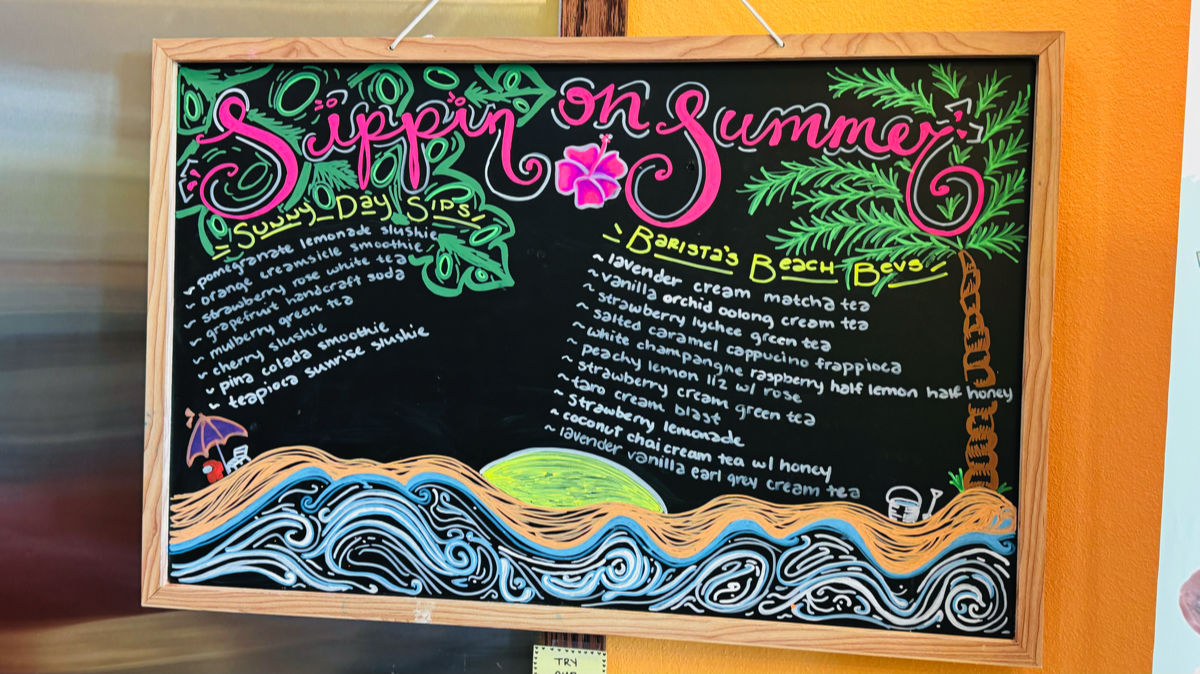 Sippin on Summer
Sunny Day Sips
~ pomegranate lemonade slushie
~ orange creamsicle smoothie
~ strawberry rose white tea
~ grapefruit handcraft soda
~ mulberry green tea
~ cherry slushie
~ pina colada smoothie
~ teapioca sunrise slushie
Barista's Beach Bevs
~ lavender cream matcha tea
~ vanilla orchid oolong cream tea
~ strawberry lychee green tea
~ salted caramel cappucino frappioca
~ white champangne raspberry half lemon half honey
~ peachy lemon 1/2 w/ rose
~ strawberry cream green tea
~ taro cream blast
~ Strawberry lemonade
~ coconut chai cream tea w/ honey
~ lavender vanilla earl grey cream tea
TRY